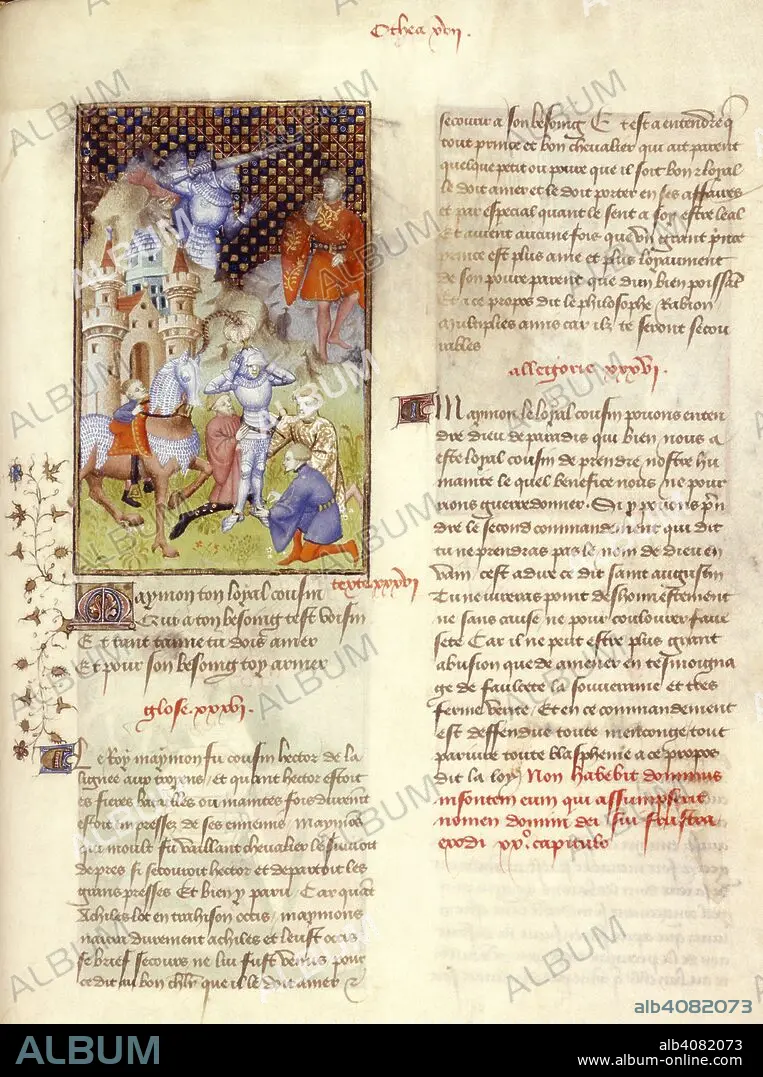 Othea xvii.
texte xxxvi
Maymon ton loyal cousin
Qui a ton besoing test voisin
Et tant taime tu dois amer
Et pour son besoing toy armer
glose. xxxvi.
Le Roy maymon fu cousin hector de la
lignee aux troyens / et quant hector estoit
es fieres batailles ou maintes fois
estoit empressez de ses ennemis / Maymon
qui moult fu vaillant chevalier le suivoit
de pres si secouroit hector et departoit les
grans presses Et bien y paru / Car quant
Achiles lot en trahison occis / maymons
navra durement achiles et leust occis
se brief secours ne lui fust venus pour
ce dit au bon chlr que il le doit amer &
secourir a son besoing Et est a entendre q
tout prince et bon chevalier qui ait parent
quelque petit ou povre que il soit bon & loyal
le doit amer et le doit porter en ses affaires
et par especial quant le sent a soy estre leal
Et avient aucune fois que un grant
prince est plus ame et plus loyaument
de son povre parent que dun bien poissant
Et a ce propos dit le philosophe Rabion
Multiplies amis car ilz te seront secou
rables
allegorie xxxvi.
Maymon le loyal cousin povons enten
dre dieu de paradis qui bien nous a
este loyal cousin de prendre nostre hu
manite le quel benefice nous ne pour
rions guerredonner. Si povons pren
dre le second commandement qui dit
tu ne prendras pas le nom de dieu en
vain cest a dire ce dit saint augustin
Tu ne jureras point deshonnestement
ne sans cause ne pour coulourer faus
sete Car il ne peut estre plus grant
abusion que de amener en tesmoigna
ge de faulcete la souveraine et tres
ferme verite / Et en ce commandement
est deffendue toute mencionge tout
parjure toute blaspheme a ce propos
dit la loy Non habebit dominus
insontem eum qui assumpserit
nomen domini dei sui frustra
exodi xx°. capitulo
ALBUM
alb4082073
ALBUM
alb4082073
www.album-online.com